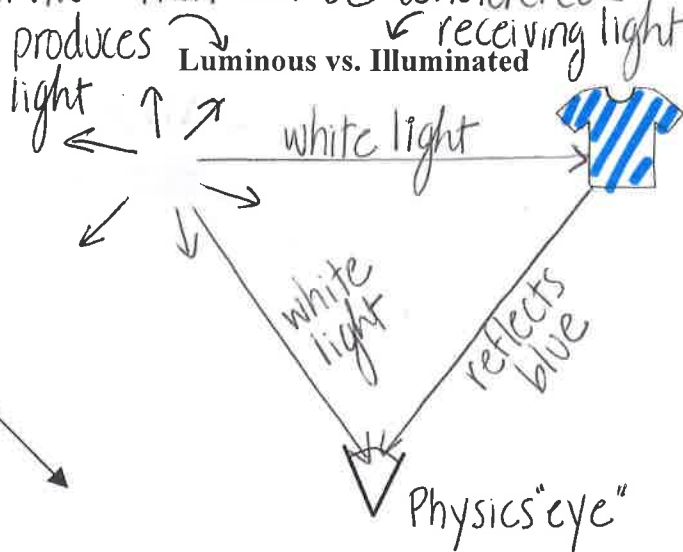 produces
receiving light
Luminous vs. Illuminated
light
white light
white
light
reflects
blue
Physics "eye"